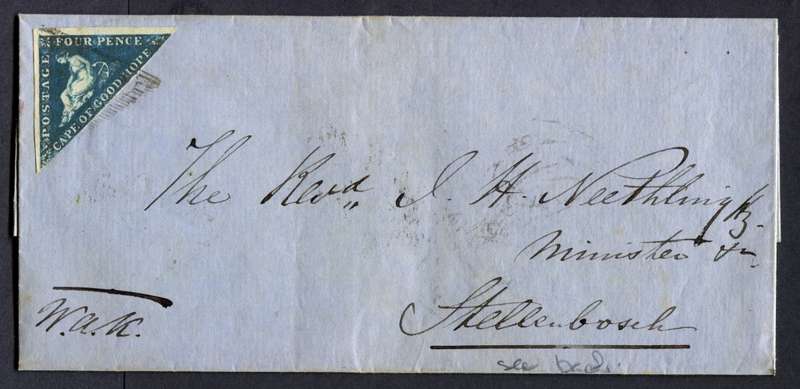 FOUR PENCE
POSTAGE
CAPE OF GOOD HOPE
The Revd J. H. Neethling
Minister &c
Stellenbosch
W.A.K.
see back